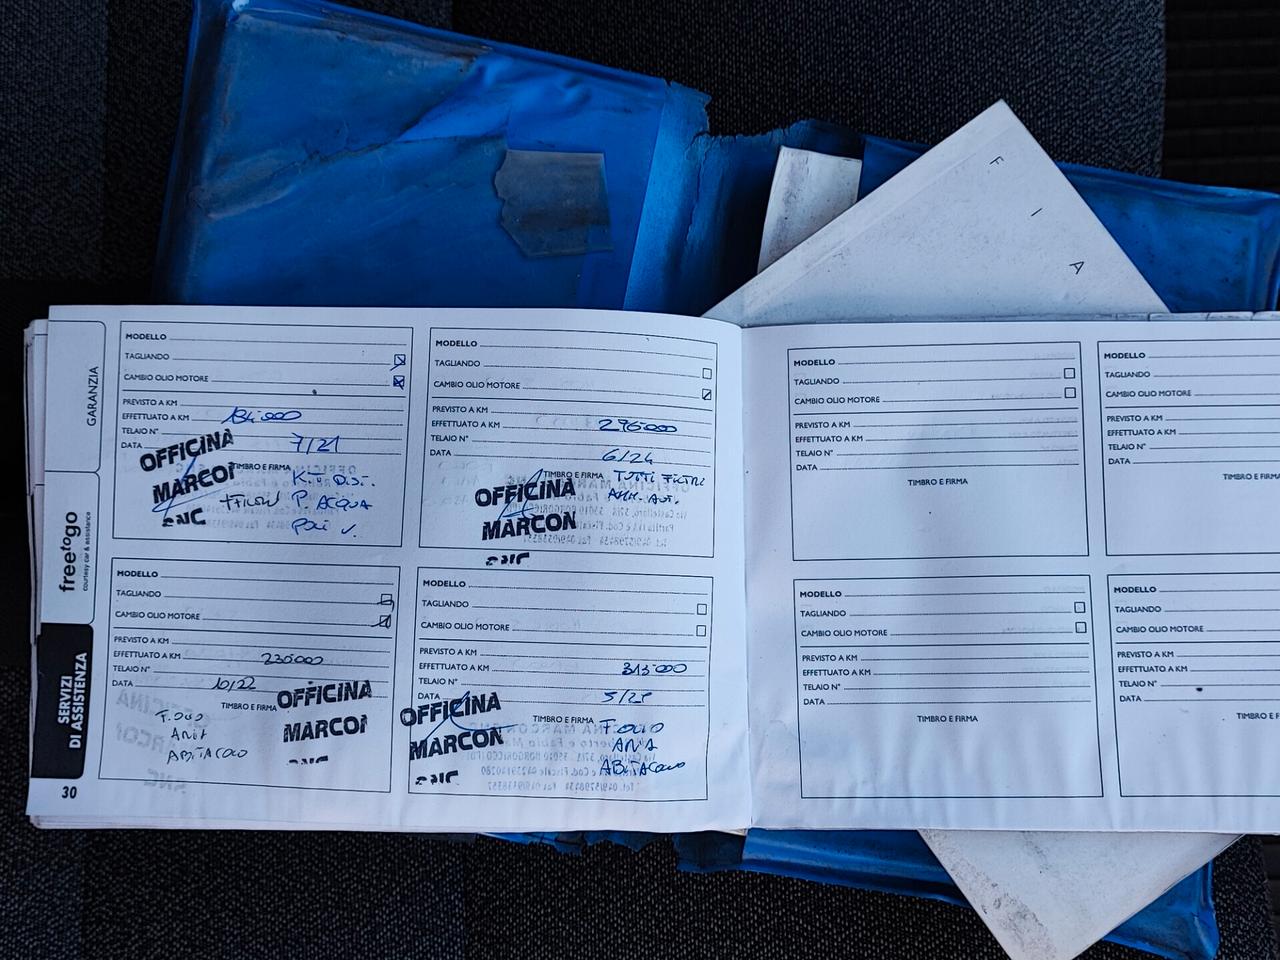 F
I
A
GARANZIA
freetogo
courtesy car & assistance
SERVIZI
DI ASSISTENZA
30
MODELLO
TAGLIANDO
CAMBIO OLIO MOTORE
PREVISTO A KM
EFFETTUATO A KM 184.000
TELAIO N°
DATA 7/21
TIMBRO E FIRMA
OFFICINA
MARCONI
SNC
K.D.S.
+FILTRI P. ACQUA
POLI V.
MODELLO
TAGLIANDO
CAMBIO OLIO MOTORE
PREVISTO A KM
EFFETTUATO A KM 296000
TELAIO N°
DATA 6/24
TIMBRO E FIRMA TUTTI FILTRI
OFFICINA
MARCON
AMM. ANT.
MODELLO
TAGLIANDO
CAMBIO OLIO MOTORE
PREVISTO A KM
EFFETTUATO A KM 230000
TELAIO N°
DATA 10/22
TIMBRO E FIRMA
OFFICINA
MARCONI
F. OLIO
ARIA
ABITACOLO
MODELLO
TAGLIANDO
CAMBIO OLIO MOTORE
PREVISTO A KM
EFFETTUATO A KM 313.000
TELAIO N°
DATA 5/25
TIMBRO E FIRMA
OFFICINA
MARCON
F. OLIO
ARIA
ABITACOLO
MODELLO
TAGLIANDO
CAMBIO OLIO MOTORE
PREVISTO A KM
EFFETTUATO A KM
TELAIO N°
DATA
TIMBRO E FIRMA
MODELLO
TAGLIANDO
CAMBIO OLIO MOTORE
PREVISTO A KM
EFFETTUATO A KM
TELAIO N°
DATA
TIMBRO E FIRMA
MODELLO
TAGLIANDO
CAMBIO OLIO MOTORE
PREVISTO A KM
EFFETTUATO A KM
TELAIO N°
DATA
TIMBRO E FIRMA
MODELLO
TAGLIANDO
CAMBIO OLIO MOTORE
PREVISTO A KM
EFFETTUATO A KM
TELAIO N°
DATA
TIMBRO E F